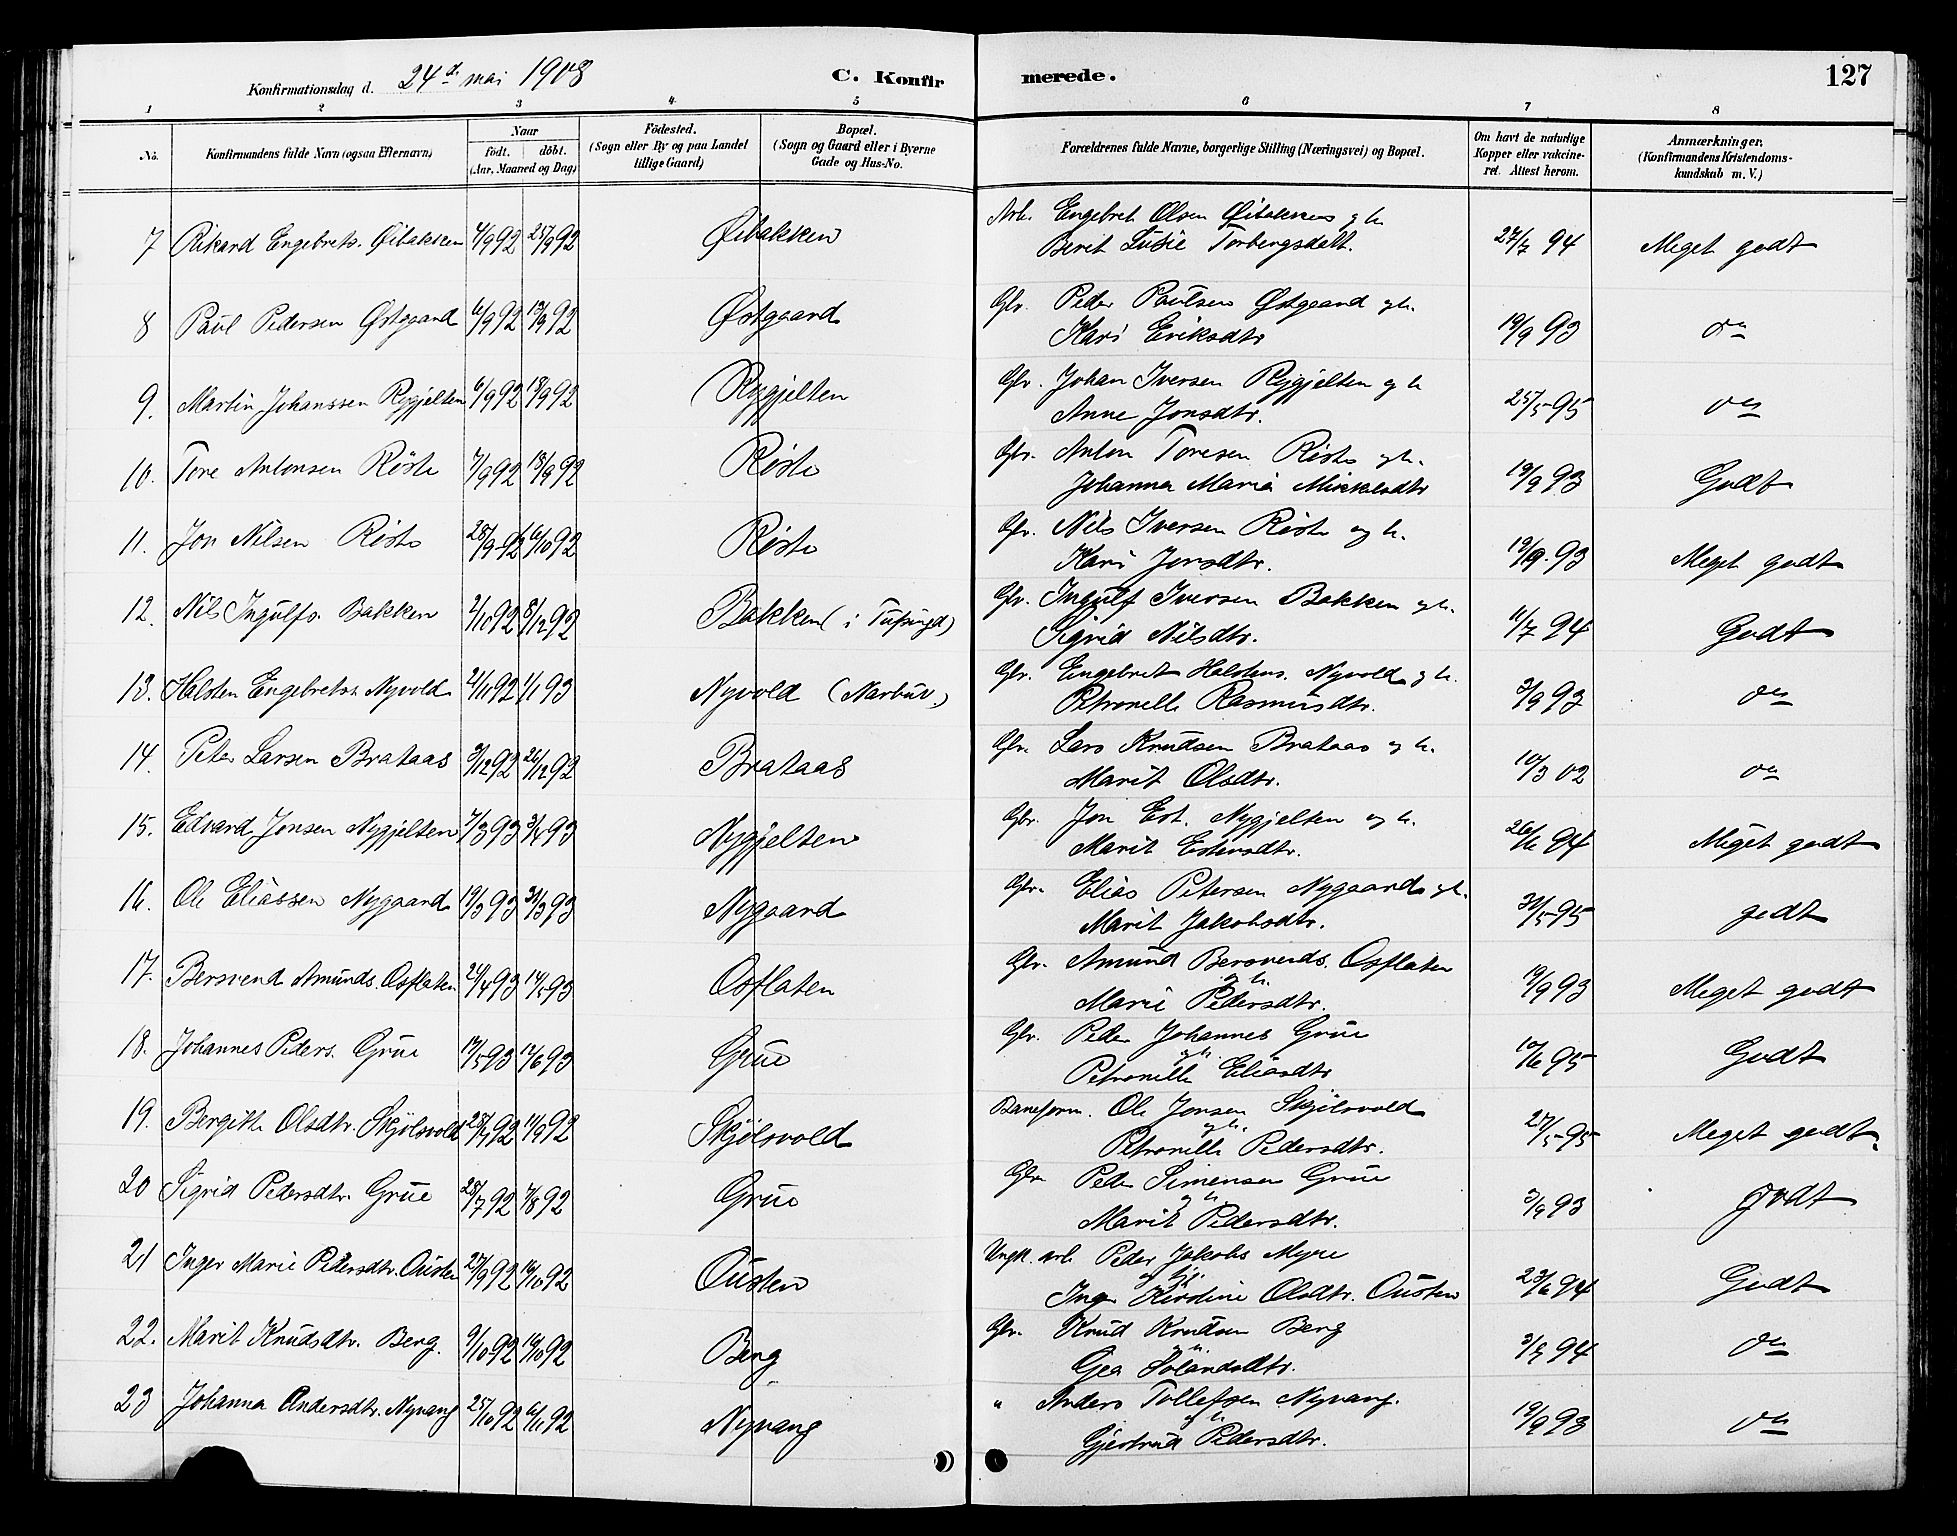 Konfirmationsdag d. 24de mai 1908 C. Konfirmerede. 127
1 2 3 4 5 6 7 8
No. Konfirmandens fulde Navn (ogsaa Efternavn) Naar født. døbt. (Aar, Maaned og Dag) Födested. (Sogn eller By og paa Landet tillige Gaard) Bopæl. (Sogn og Gaard eller i Byerne Gade og Hus-No. Forældrenes fulde Navne, borgerlige Stilling (Næringsvei) og Bopæl. Om havt de naturlige Kopper eller vakcineret. Attest herom. Anmærkninger, (Konfirmandens Kristendomskundskab m. V.)
7 Rikard Engebrets. Øibakken 4/9 92 25/9 92 Øibakken Arb. Engebret Olsen Øibakken og h. 27/7 94 Meget godt
Berit Lusie Torbergsdatt.
8 Paul Pedersen Østgaard 6/9 92 18/9 92 Østgaard Gbr. Peder Paulsen Østgaard og h. 19/9 93 do
Kari Eriksdtr
9. Martin Johanssen Rygjelten 6/9 92 18/9 92 Rygjelten Gbr. Johan Iversen Rygjelten og h 25/5 95 do
Anne Jonsdtr.
10. Tore Antonsen Røste 7/9 92 18/9 92 Røste Gbr. Anton Toresen Røste og h. 19/9 93 Godt
Johanna Maria Mikkelsdtr
11. Jon Nilsen Røste 28/9 92 16/10 92 Røste Gbr. Nils Iversen Røste og h. 19/9 93 Meget godt
Kari Jonsdtr.
12. Nils Ingulfs. Bakken 2/10 92 8/12 92 Bakken (i Tufsingd) Gbr. Ingulf Iversen Bakken og h. 11/7 94 Godt
Sigrid Nilsdtr.
13. Halsten Engebrets. Nyvold 2/11 92 1/1 93 Nyvold (Narbuv.) Gbr. Engebret Halstens. Nyvold og h. 3/9 93 do
Petronelle Rasmusdtr.
14. Peter Larsen Brataas 3/12 92 26/12 92 Brataas Gbr. Lars Knudsen Brataas og h. 10/3 02 do
Marit Olsdtr.
15. Edvard Jonsen Nygjelten 7/3 93 3/4 93 Nygjelten Gbr. Jon Est. Nygjelten og h. 26/6 94 Meget godt
Marit Estensdtr.
16. Ole Eliassen Nygaard 19/3 93 31/3 93 Nygaard Gbr. Elias Petersen Nygaard og h. 31/5 95 godt
Marit Jakobsdtr.
17. Bersvend Amunds. Osflaten 21/4 93 14/5 93 Osflaten Gbr. Amund Bersvends. Osflaten 19/9 93 Meget godt
og h.
Marie Pedersdtr.
18. Johannes Peders. Grue 17/5 93 12/6 93 Grue Gbr. Peder Johannes Grue 10/6 95 Godt
og h.
Petronille Eliasdtr
19. Bergitte Olsdtr. Skjølsvold 25/7 92 11/9 92 Skjølsvold Baneform. Ole Jonsen Skjølsvold 27/5 95 Meget godt
og h.
Petronille Pedersdtr.
20 Sigrid Pedersdtr. Grue 28/7 92 7/8 92 Grue Gbr. Peder Simensen Grue 3/9 93 godt
og h
Marit Pedersdtr.
21 Inger Marie Pedersdtr. Ousten 27/9 92 16/10 92 Ousten Ungk. arb. Peder Jakobs Myre 23/6 94 Godt
Inger Kirstine Olsdtr. Ousten
22. Marit Knudsdtr. Berg 9/10 92 16/10 92 Berg Gbr. Knud Knudsen Berg 3/9 94 do
Gea
23 Johanna Andersdtr. Nyvang 25/10 92 6/11 92 Nyvang " Anders Tollefsen Nyvang. 19/9 93 do
og h
Gjertrud Pedersdtr.